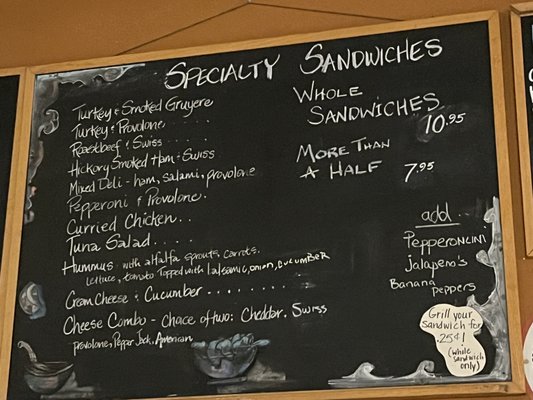 Specialty Sandwiches
Turkey & Smoked Gruyere
Turkey & Provolone.....
Roastbeef & Swiss.....
Hickory Smoked Ham & Swiss
Mixed Deli - ham, salami, provolone
Pepperoni & Provolone.
Curried Chicken..
Tuna Salad.....
Hummus with alfalfa sprouts, carrots.
lettuce, tomato Topped with balsamic, onion, cucumber
Cream Cheese & Cucumber........
Cheese Combo - Choice of two: Cheddar, Swiss
provolone, Pepper Jack, American
Whole
Sandwiches
10.95
More Than
A Half 7.95
add
Pepperoncini
Jalapeno's
Banana
Peppers
Grill your
Sandwich for
.25¢!
(whole
sandwich
only)